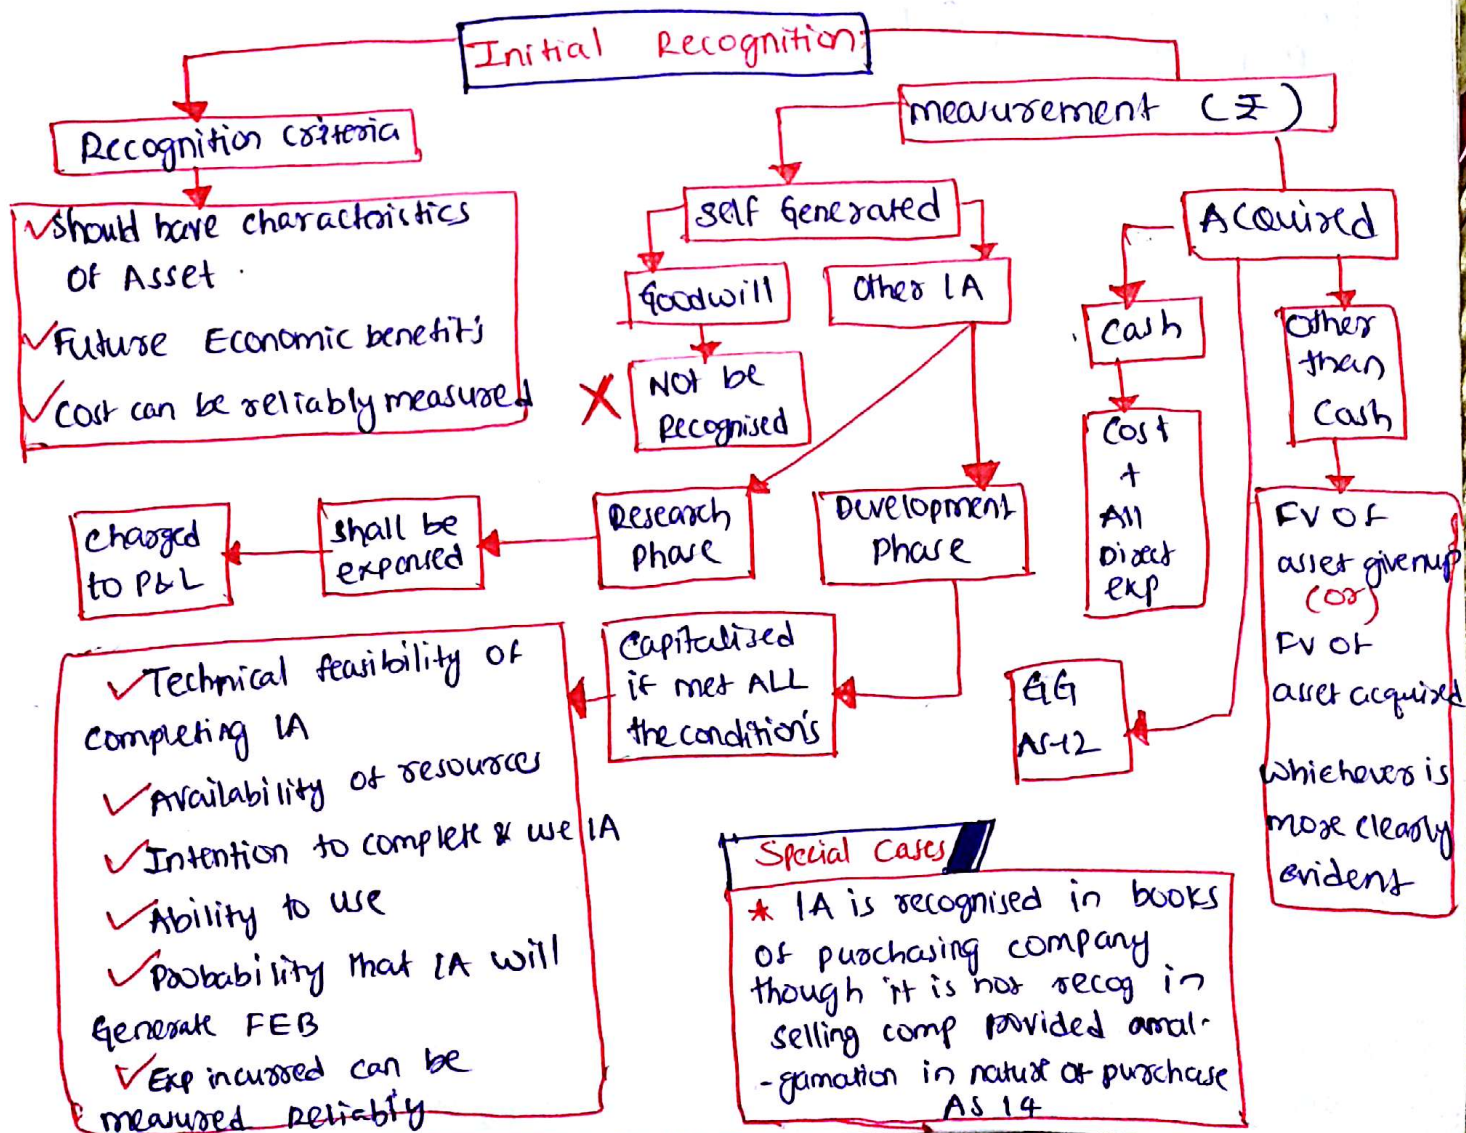 Initial Recognition
Recognition Criteria
✓ Should have characteristics
of Asset.
✓ Future Economic benefit's
✓ Cost can be reliably measured
measurement (₹)
Self Generated
Goodwill
Not be
Recognised
Other IA
Research
Phase
Shall be
expensed
Charged
to P&L
Development
Phase
Capitalised
if met ALL
the condition's
✓ Technical feasibility of
completing IA
✓ Availability of resources
✓ Intention to complete & use IA
✓ Ability to use
✓ Probability that IA will
Generate FEB
✓ Exp incurred can be
measured Reliably
Acquired
Cash
Cost
+
All
Direct
exp
GG
AS-12
Other
than
Cash
FV Of
asset given up
(or)
FV Of
asset acquired
whichever is
more clearly
evident
Special Cases
* IA is recognised in books
of purchasing company
though it is not recog in
selling comp provided amal-
-gamation in nature of purchase
AS 14